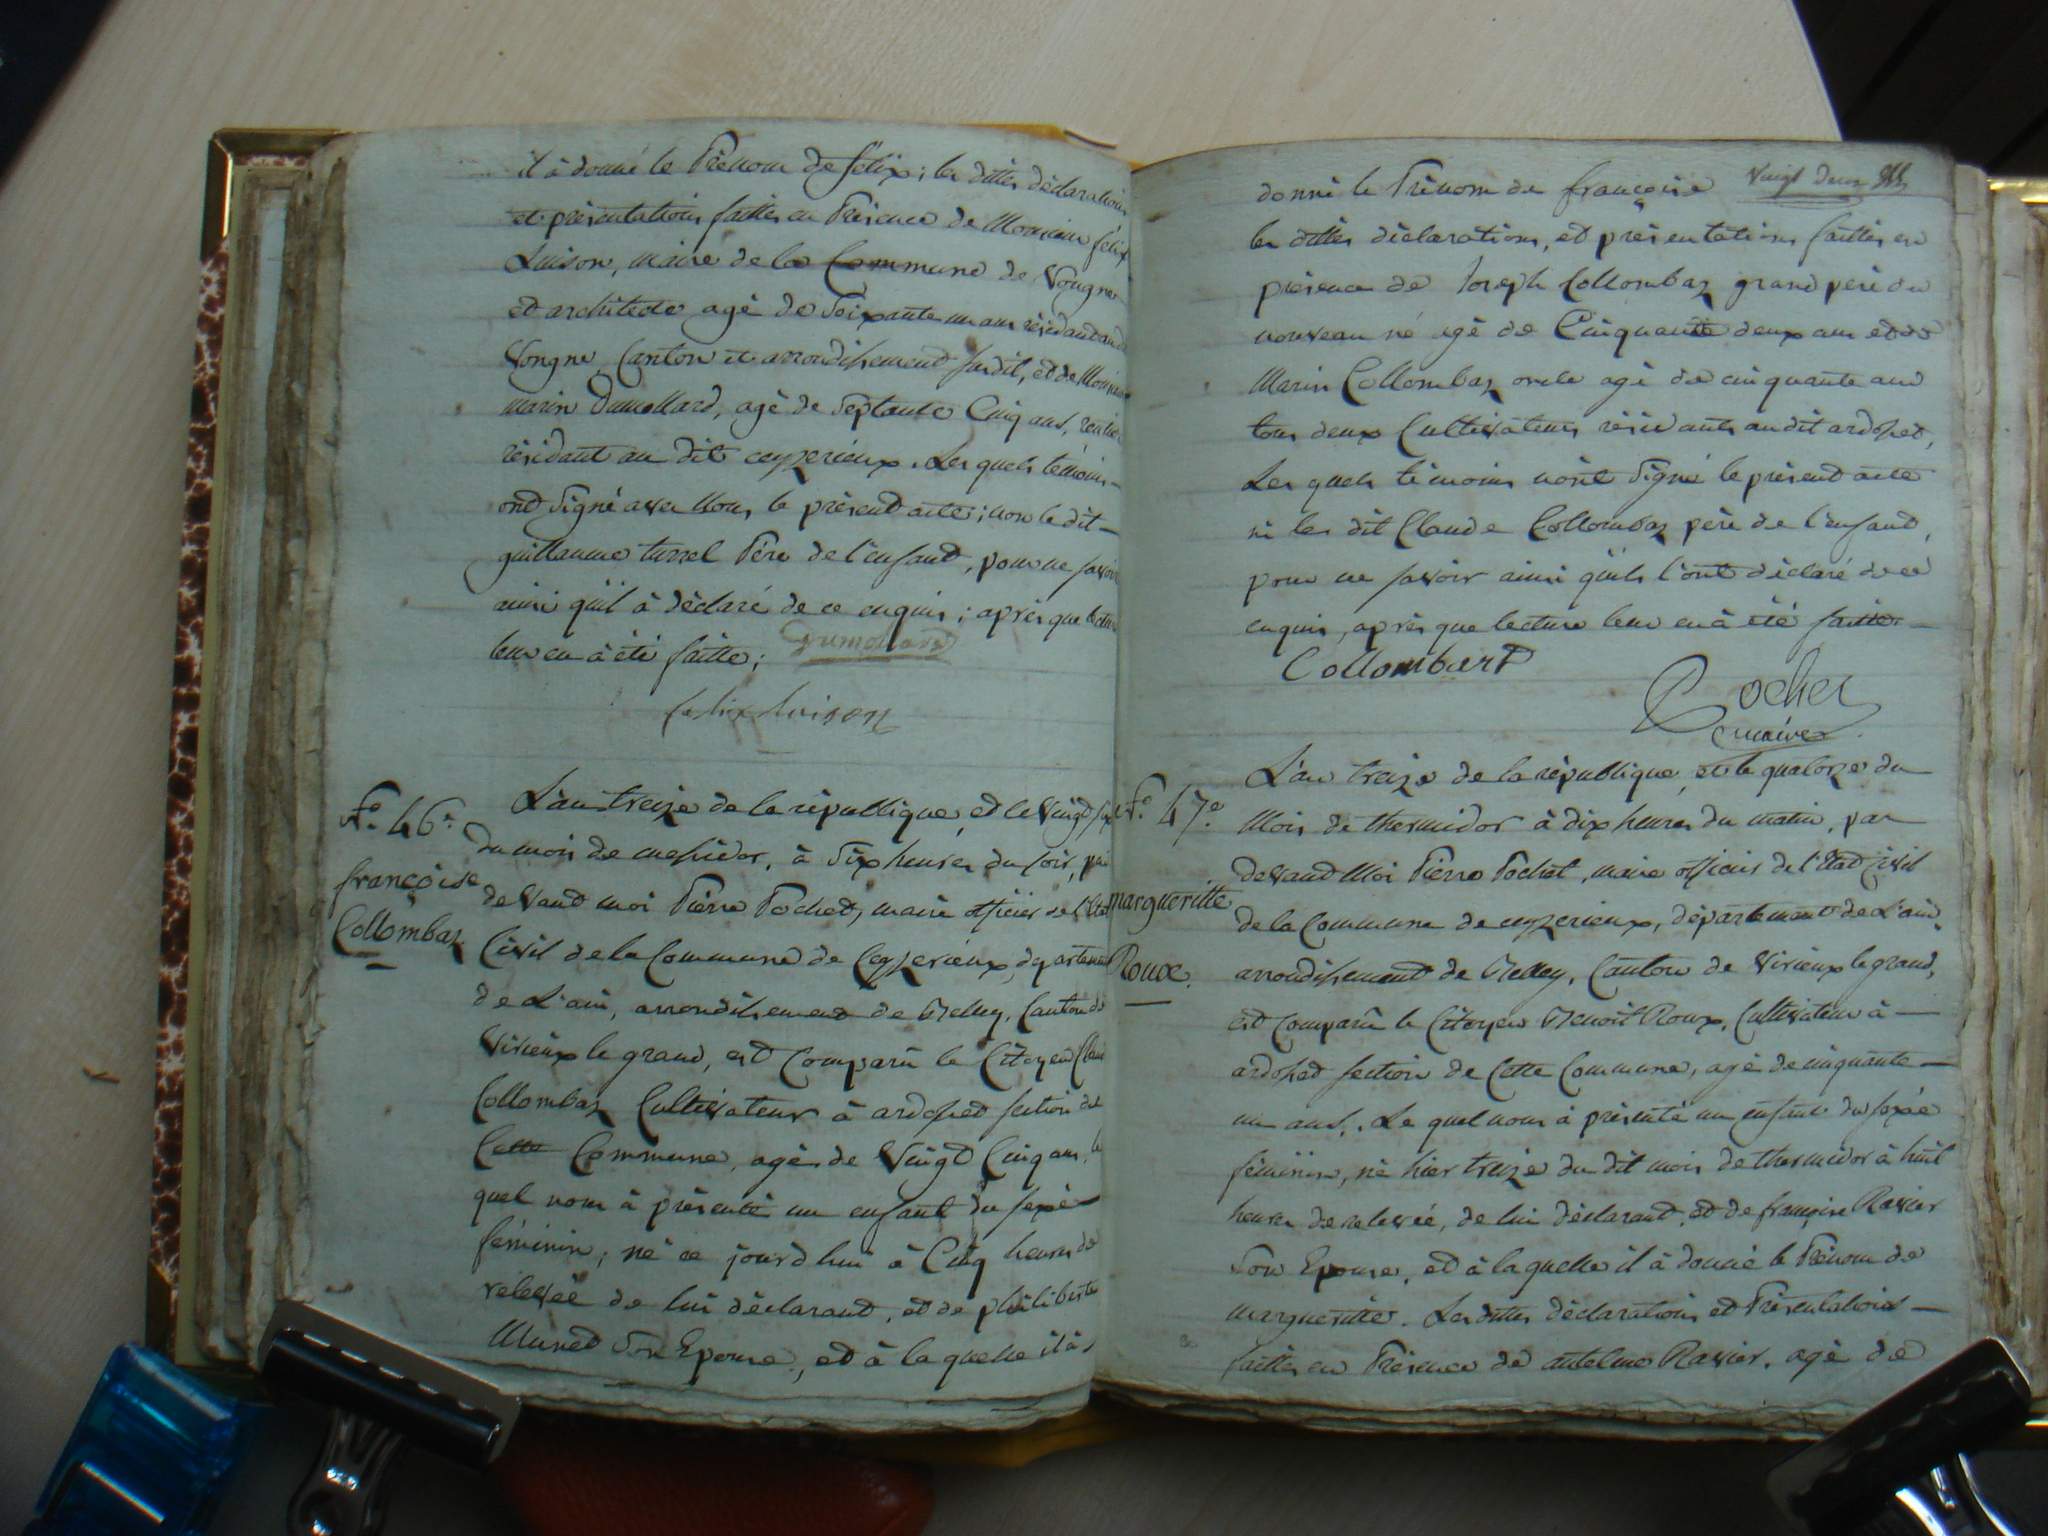 il à donné le Prénom de félix; les dittes déclarations
et présentations faittes en Présence de Monsieur félix
Luison, maire de la Commune de Vongne
et architecte agé de Soixante un ans résidant au dit
Vongne, Canton et arrondissement susdit, et de Monsieur
marin Dumollard, agé de Septante Cinq ans, rentier
résidant au dit ceyzerieux. Les quels témoins
ont Signé avec Nous le présent acte; non le dit
guillaume turrel Pére de l'enfant, pour ne savoir
ainsi qu'il à déclaré de ce enquis; après que lecture
leur en à été faitte;
Dumollard
felix luison
No. 46e
françoise
Collombaz
L'an treize de la république, et le Vingt six
du mois de messidor, à Six heures du soir, par
devant moi Pierre Pochet, maire officier de l'Etat
Civil de la Commune de Ceyzerieux, departement
de L'ain, arrondissement de Belley, Canton de
Virieux le grand, est Comparû le Citoyen Claude
Collombaz Cultivateur à ardosset section de
Cette Commune, agé de Vingt Cinq ans, le
quel nous à présenté un enfant du sexe
féminin; né ce jourd'hui à Cinq heures de
relevée de lui déclarant, et de philiberte
Munet Son Epouse, et à la quelle il à
Vingt deux
donné le Prénom de françoise
les dittes déclarations, et présentations faittes en
présence de Joseph Collombaz grand pere du
nouveau né agé de Cinquante deux ans et de
Marin Collombaz oncle agé de cinquante ans
tous deux Cultivateurs résidants au dit ardosset,
Les quels témoins n'ont Signé le présent acte
ni les dit Claude Collombaz père de l'enfant,
pour ne savoir ainsi qu'ils l'ont déclaré de ce
enquis, après que lecture leur en à été faitte
Collombert
Pochet
maire
No. 47e
margueritte
Roux.
L'an treize de la république, et le quatorze du
Mois de thermidor à dix heures du matin, par
devant Moi Pierre Pochet, maire officier de l'Etat Civil
de la Commune de ceyzerieux, département de L'ain,
arrondissement de Belley, Canton de Virieux le grand,
est Comparû le Citoyen Benoît Roux, Cultivateur à
ardosset section de Cette Commune, agé de cinquante
un ans,. Le quel nous à présenté un enfant du sexe
féminin, né hier treize du dit mois de thermidor à huit
heures de relevée, de lui déclarant, et de françoise Ravier
Son Epouse, et à la quelle il à donné le Prénom de
margueritte. Les dittes déclarations et Présentations
faittes en Présence de antelme Ravier, agé de